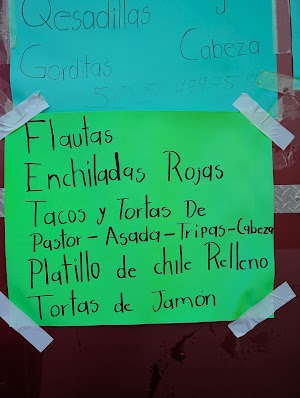 Qesadillas
Gorditas Cabeza
Flautas
Enchiladas Rojas
Tacos y Tortas De
Pastor-Asada-Tripas-Cabeza
Platillo de chile Relleno
Tortas de Jamón